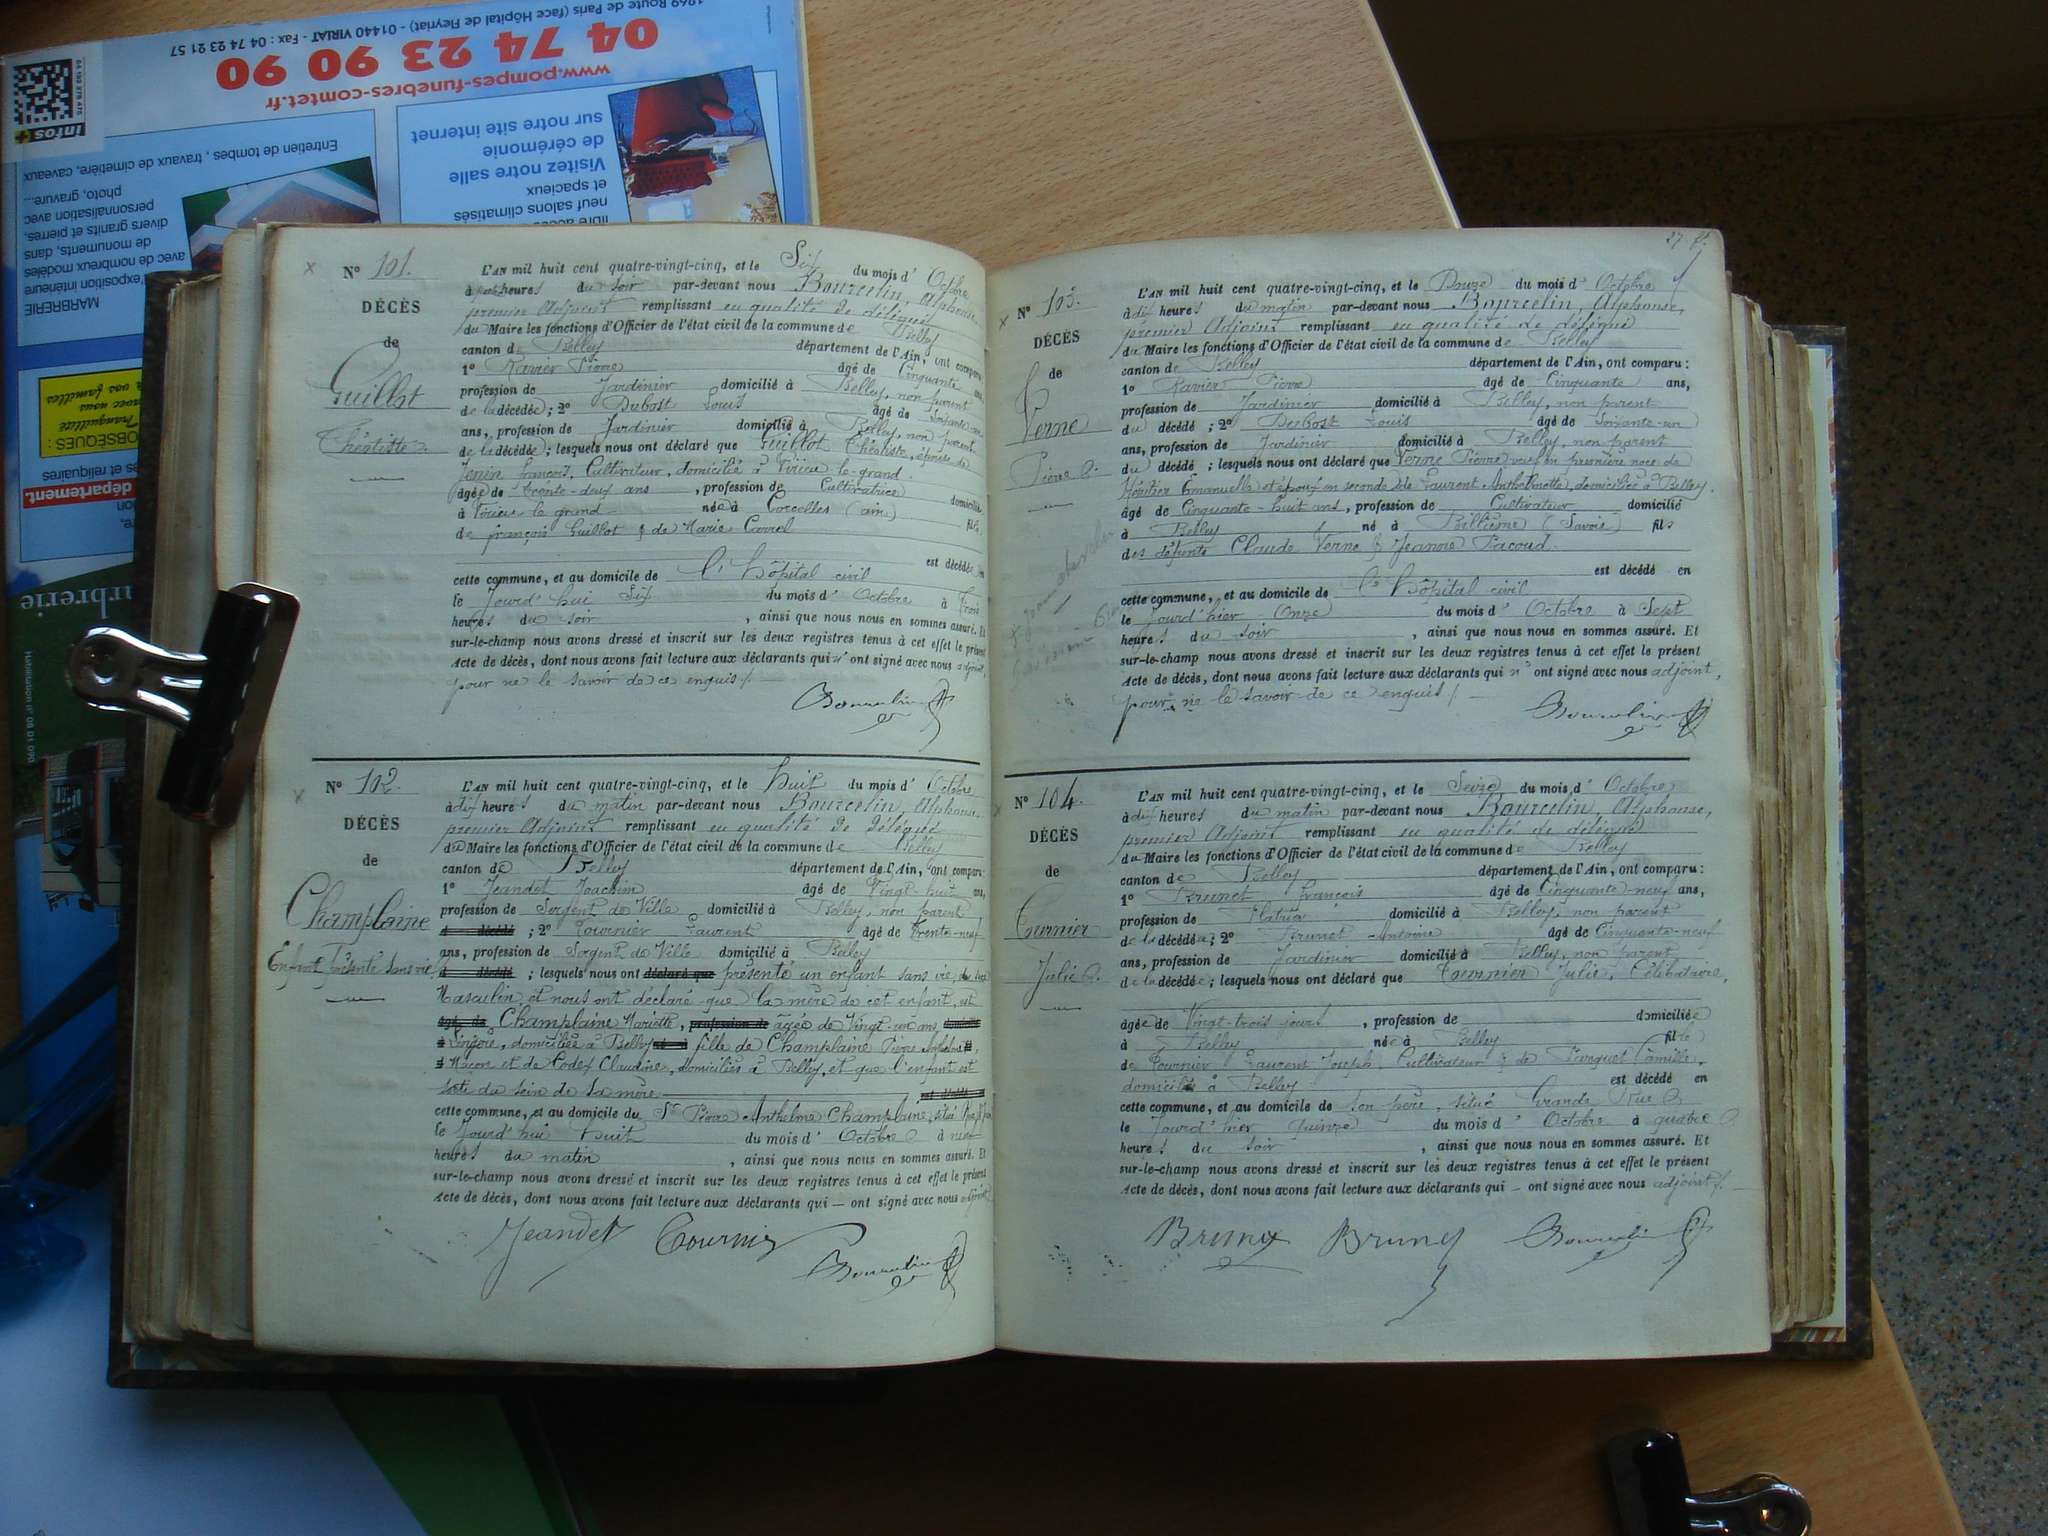 1869 Route de Paris (face Hôpital de Fleyriat) - 01440 VIRIAT - Fax : 04 74 23 21 57
04 74 23 90 90
www.pompes-funebres-comtet.fr
infos+
Entretien de tombes, travaux de cimetière, caveaux
photo, gravure...
personnalisation avec
divers granits et pierres,
de monuments, dans
avec de nombreux modèles
d'exposition intérieure
MARBRERIE
Visitez notre salle
de cérémonie
sur notre site internet
neuf salons climatisés
et spacieux
OBSÈQUES :
Tranquillité
avec nous
à vos familles
es et reliquaires
département.
Habilitation n° 08 01 090
N° 101.
DÉCÈS
de
Guillot
Théotiste
L'AN mil huit cent quatre-vingt-cinq, et le Six du mois d' Octobre
à heures du soir par-devant nous Bourcelin, Alphonse
premier Adjoint remplissant en qualité de délégué
du Maire les fonctions d'Officier de l'état civil de la commune de Belley
canton de Belley département de l'Ain, ont comparu :
1° Ravier Pierre âgé de Cinquante
profession de Jardinier domicilié à Belley, non parent
de la décédée ; 2° Dubost Louis âgé de Soixante-un
ans, profession de Jardinier domicilié à Belley, non parent
de la décédée ; lesquels nous ont déclaré que Guillot Théotiste, épouse de
Jenin françois, Cultivateur, domiciliée à Virieu-le-grand
âgée de trente-deux ans , profession de Cultivatrice domiciliée
à Virieu le grand née à Corcelles (ain) fille
de françois Guillot & de Marie Carrel
est décédée en
cette commune, et au domicile de l'hôpital civil
le Jourd'hui Six du mois d' Octobre à trois
heures du soir , ainsi que nous nous en sommes assuré. Et
sur-le-champ nous avons dressé et inscrit sur les deux registres tenus à cet effet le présent
Acte de décès, dont nous avons fait lecture aux déclarants qui n'ont signé avec nous adjoint,
pour ne le savoir de ce enquis /.
Bourcelin
N° 102.
DÉCÈS
de
Champlaine
Enfant présenté sans vie
L'AN mil huit cent quatre-vingt-cinq, et le huit du mois d' Octobre
à dix heures du matin par-devant nous Bourcelin, Alphonse
premier Adjoint remplissant en qualité de délégué
du Maire les fonctions d'Officier de l'état civil de la commune de Belley
canton de Belley département de l'Ain, ont comparu :
1° Jeandet Joachim âgé de Vingt-huit ans,
profession de Sergent de Ville domicilié à Belley, non parent
décédé ; 2° Tournier Laurent âgé de trente-neuf
ans, profession de Sergent de Ville domicilié à Belley
décédé ; lesquels nous ont déclaré que présenté un enfant sans vie, du sexe
Masculin et nous ont déclaré que la mère de cet enfant, est
âgé de Champlaine Mariette, profession de âgée de Vingt-un ans domicilié
Lingère, domiciliée à Belley fille de Champlaine Pierre Anthelme
Maçon et de Codex Claudine, domiciliés à Belley, et que l'enfant est
sorti du sein de sa mère est décédé en
cette commune, et au domicile du Sr Pierre Anthelme Champlaine, situé
le Jourd'hui huit du mois d' Octobre à neuf
heures du matin , ainsi que nous nous en sommes assuré. Et
sur-le-champ nous avons dressé et inscrit sur les deux registres tenus à cet effet le présent
Acte de décès, dont nous avons fait lecture aux déclarants qui — ont signé avec nous adjoint
Jeandet Tournier
Bourcelin
27
N° 103.
DÉCÈS
de
Verne
Pierre
L'AN mil huit cent quatre-vingt-cinq, et le Douze du mois d' Octobre
à dix heures du matin par-devant nous Bourcelin, Alphonse,
premier Adjoint remplissant en qualité de délégué
du Maire les fonctions d'Officier de l'état civil de la commune de Belley
canton de Belley département de l'Ain, ont comparu :
1° Ravier Pierre âgé de Cinquante ans,
profession de Jardinier domicilié à Belley, non parent
du décédé ; 2° Dubost Louis âgé de Soixante-un
ans, profession de Jardinier domicilié à Belley, non parent
du décédé ; lesquels nous ont déclaré que Verne Pierre veuf en première noce de
Héritier Emanuelle et époux en seconde de Laurent Anthelmette, domicilié à Belley.
âgé de Cinquante-huit ans, profession de Cultivateur domicilié
à Belley né à Billième (Savoie) fils
des défunts Claude Verne & Jeanne Pacoud.
est décédé en
cette commune, et au domicile de l'hôpital civil
le Jourd'hier Onze du mois d' Octobre à Sept
heures du soir , ainsi que nous nous en sommes assuré. Et
sur-le-champ nous avons dressé et inscrit sur les deux registres tenus à cet effet le présent
Acte de décès, dont nous avons fait lecture aux déclarants qui n'ont signé avec nous adjoint,
pour ne le savoir de ce enquis /.
Bourcelin
N° 104.
DÉCÈS
de
Tournier
Julie
L'AN mil huit cent quatre-vingt-cinq, et le Seize du mois d' Octobre
à dix heures du matin par-devant nous Bourcelin, Alphonse,
premier Adjoint remplissant en qualité de délégué
du Maire les fonctions d'Officier de l'état civil de la commune de Belley
canton de Belley département de l'Ain, ont comparu :
1° Brunet françois âgé de Cinquante-neuf ans,
profession de Platrier domicilié à Belley, non parent
de la décédée ; 2° Brunet Antoine âgé de Cinquante-neuf
ans, profession de Jardinier domicilié à Belley, non parent
de la décédée ; lesquels nous ont déclaré que Tournier Julie, Célibataire,
âgée de Vingt-trois jours , profession de domiciliée
à Belley née à Belley fille
de Tournier Laurent Joseph, Cultivateur & de Camille,
domiciliés à Belley est décédé en
cette commune, et au domicile de son père, situé Grande Rue
le Jourd'hier Quinze du mois d' Octobre à quatre
heures du soir , ainsi que nous nous en sommes assuré. Et
sur-le-champ nous avons dressé et inscrit sur les deux registres tenus à cet effet le présent
Acte de décès, dont nous avons fait lecture aux déclarants qui — ont signé avec nous adjoint /.
Brunet Brunet Bourcelin